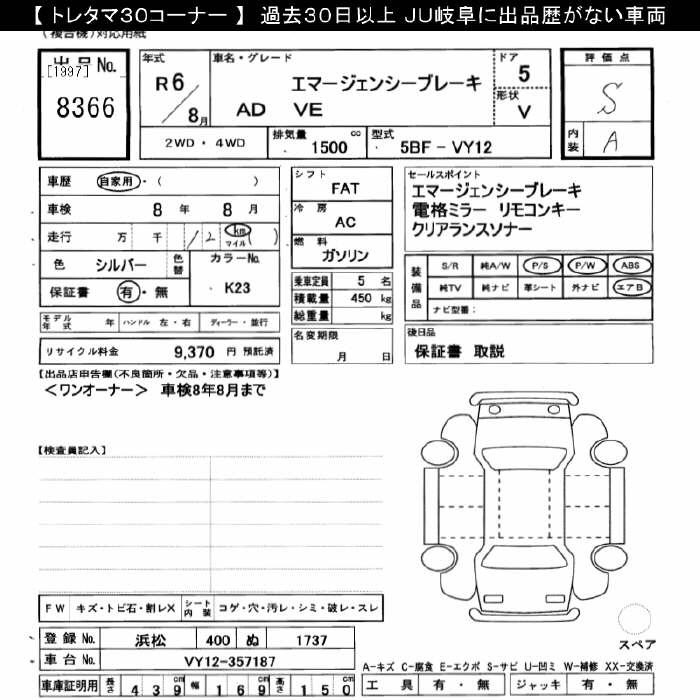 【 トレタマ30コーナー 】 過去30日以上 JU岐阜に出品歴がない車両
(複合機)対応用紙
出品No.
[1997]
8366
年式 R6/8月
車名・グレード エマージェンシーブレーキ
AD VE
ドア 5
形状 V
評価点 S
内装 A
2WD・4WD 排気量 1500 cc 型式 5BF-VY12
車歴 自家用・( )
車検 8年 8月
走行 万 千 12 km マイル ( )
色 シルバー 色替 カラーNo. K23
保証書 有・無
シフト FAT
冷房 AC
燃料 ガソリン
乗車定員 5 名
積載量 450 kg
総重量 kg
名変期限 月 日
セールスポイント
エマージェンシーブレーキ
電格ミラー リモコンキー
クリアランスソナー
装備品 S/R 純A/W P/S P/W ABS
純TV 純ナビ 革シート 外ナビ エアB
ナビ型番:
モデル年式 年 ハンドル 左・右 ディーラー・並行
リサイクル料金 9,370 円 預託済
後日品
保証書 取説
【出品店申告欄(不良箇所・欠品・注意事項等)】
<ワンオーナー> 車検8年8月まで
【検査員記入】
FW キズ・トビ石・割レX シート内装 コゲ・穴・汚レ・シミ・破レ・スレ
登録No. 浜松 400 ぬ 1737
車台No. VY12-357187
車庫証明用 長さ 439 cm 幅 169 cm 高さ 150 cm
スペア
A-キズ C-腐食 E-エクボ S-サビ U-凹ミ W-補修 XX-交換済
工具 有・無 ジャッキ 有・無